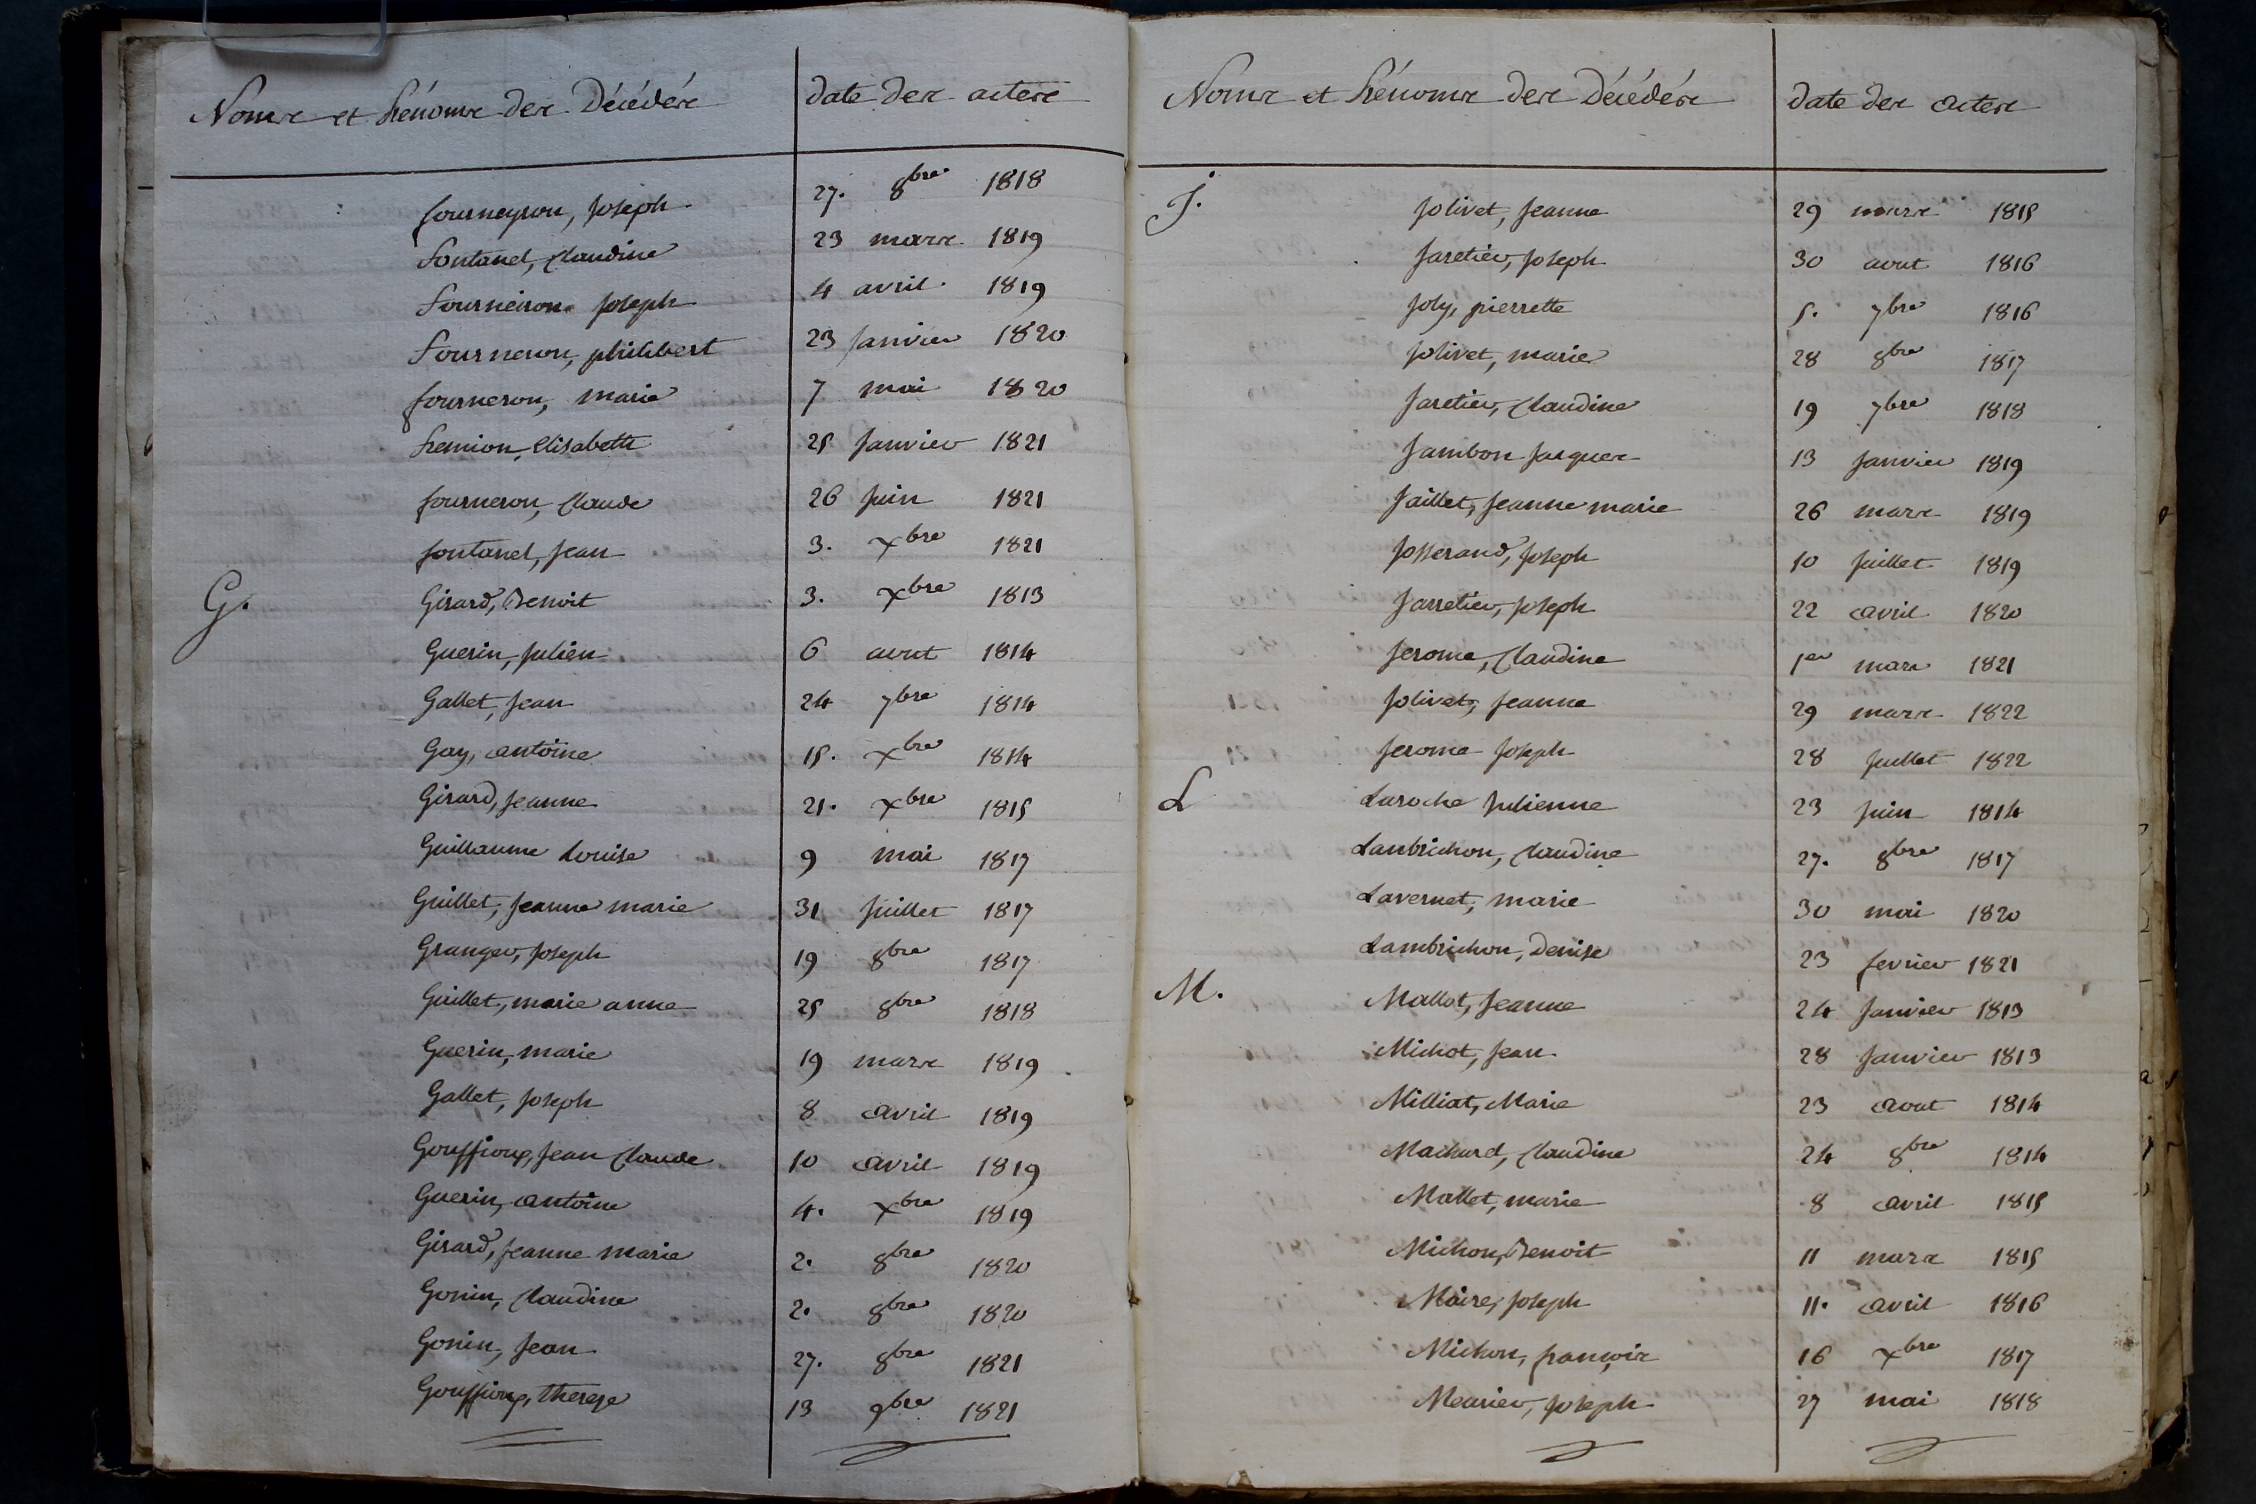 Noms et Prénoms des Décédés date des actes
fourneyron, joseph. 27. 8bre 1818
fontanel, Claudine 23 mars 1819
fourneiron joseph 4 avril. 1819
fourneron, philibert 23 janvier 1820
fourneron, marie 7 mai 1820
fremion, elisabeth 25 janvier 1821
fourneron, Claude 26 juin 1821
fontanel, jean 3. xbre 1821
G. Girard, Benoit 3. xbre 1813
Guerin, julien 6 aout 1814
Gallet, jean 24 7bre 1814
Gay, antoine 15. xbre 1814
Girard, jeanne 21. xbre 1815
Guillaume Louise 9 mai 1817
Guillet, jeanne marie 31 juillet 1817
Granger, joseph 19 8bre 1817
Guillet, marie anne 25 8bre 1818
Guerin, marie 19 mars 1819
Gallet, joseph 8 avril 1819
Gouffioux, jean Claude 10 avril 1819
Guerin, antoine 4. xbre 1819
Girard, jeanne marie 2. 8bre 1820
Gonin, Claudine 2. 8bre 1820
Gonin, jean 27. 8bre 1821
Gouffioux, therese 13 9bre 1821
Noms et Prénoms des Décédés date des actes
J. jolivet, jeanne 29 mars 1815
jaretier, joseph 30 aout 1816
joly, pierrette 5. 7bre 1816
jolivet, marie 28 8bre 1817
jaretier, Claudine 19 7bre 1818
jambon jacques 13 janvier 1819
jaillet, jeanne marie 26 mars 1819
josserand, joseph 10 juillet 1819
jarretier, joseph 22 avril 1820
jerome, Claudine 1er mars 1821
jolivet, jeanne 29 mars 1822
jerome joseph 28 juillet 1822
L Laroche julienne 23 juin 1814
Lanbrichon, Claudine 27. 8bre 1817
Lavernet, marie 30 mai 1820
Lambrichon, Denise 23 fevrier 1821
M. Mallot, jeanne 24 janvier 1813
Michot, jean. 28 janvier 1813
Milliat, Marie 23 aout 1814
Machurel, Claudine 24 8bre 1814
Mallet, marie 8 avril 1815
Michon, Benoit 11 mars 1815
Maire, joseph 11. avril 1816
Michon, françois 16 xbre 1817
Meurier, joseph 27 mai 1818